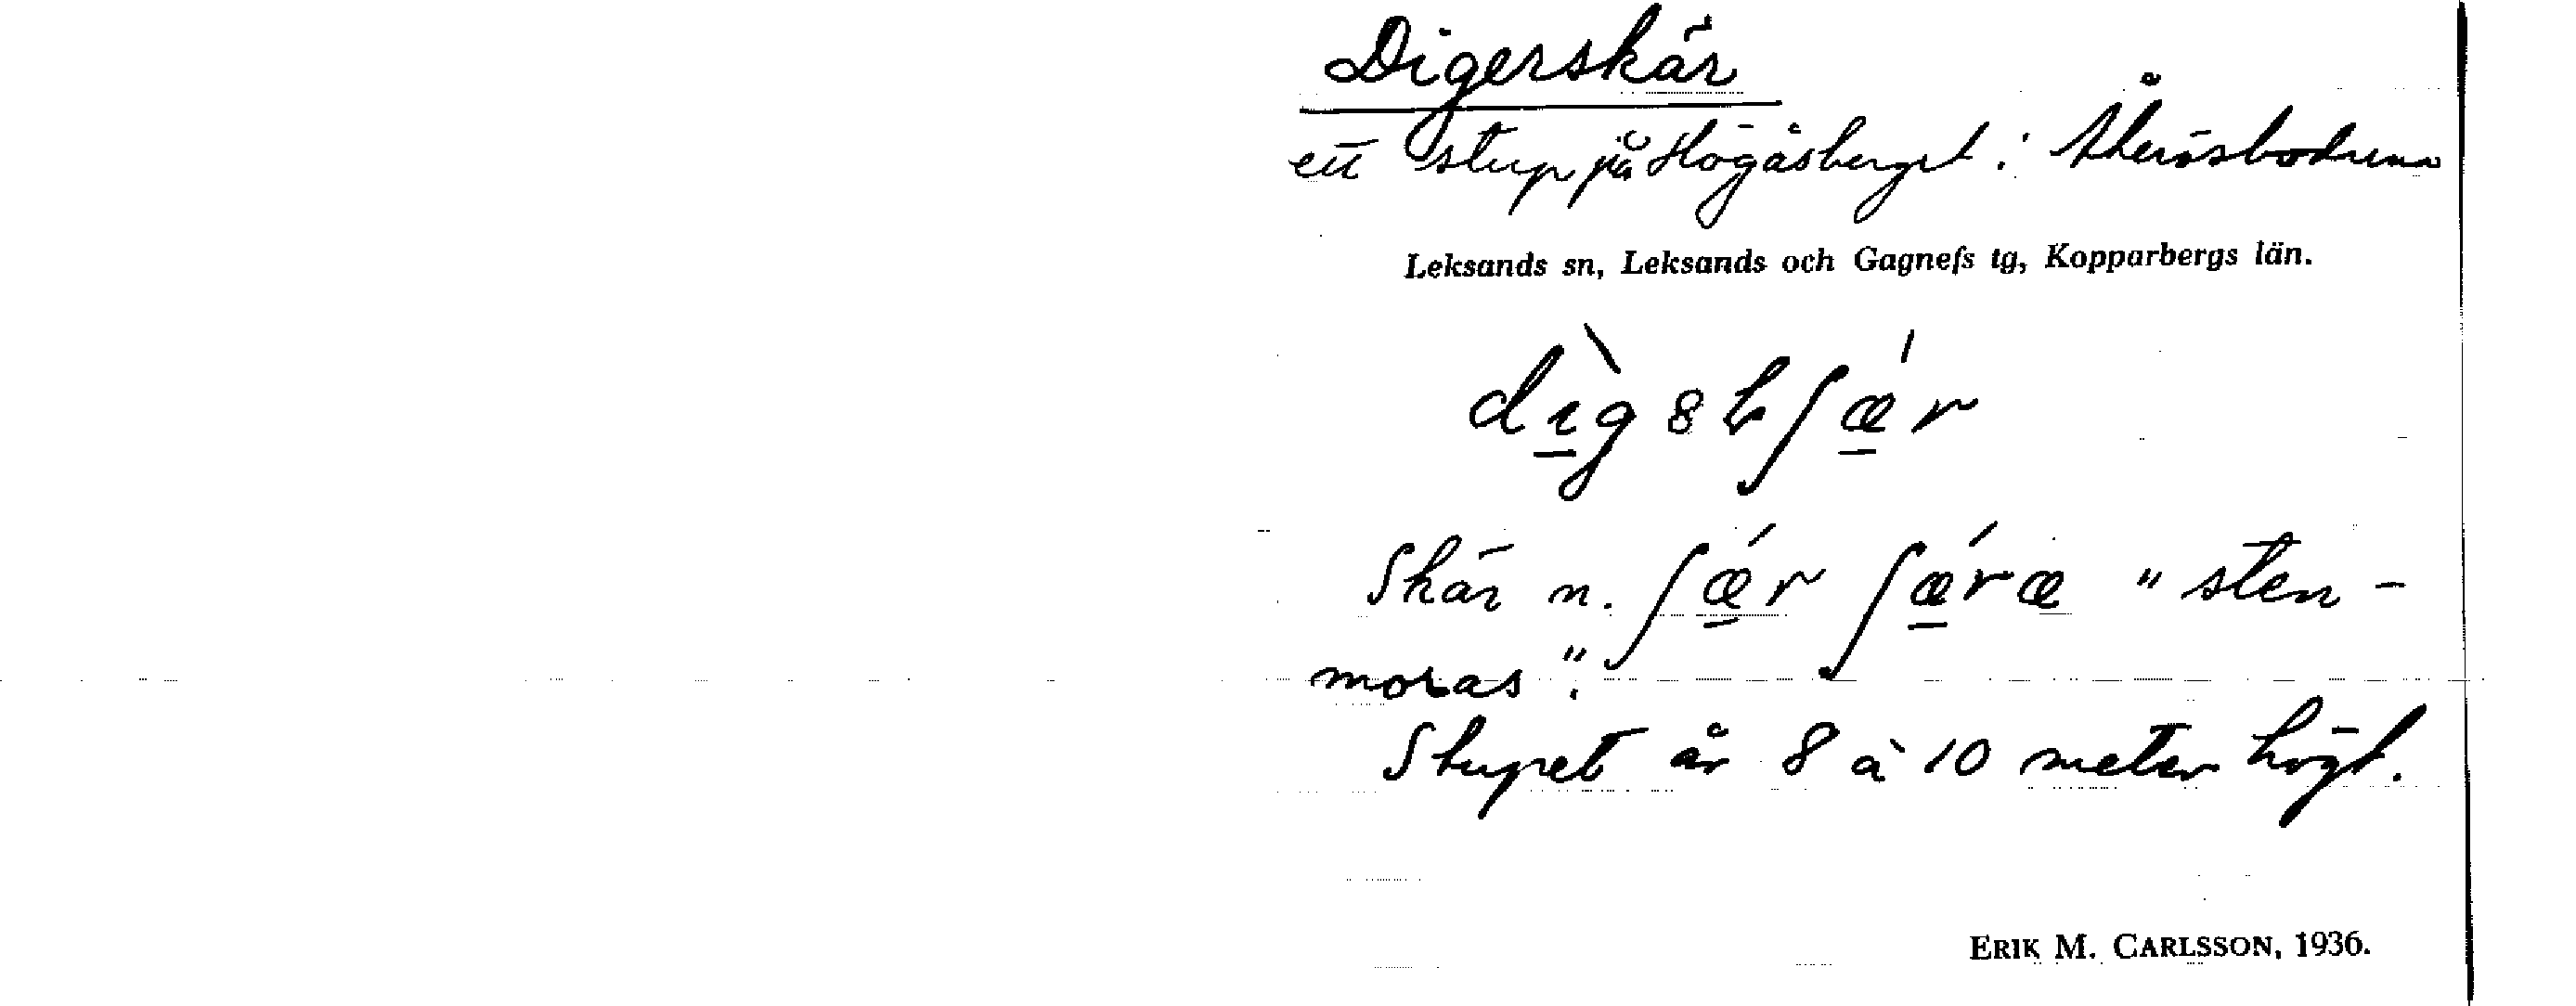 Digerskär
ett stup på Högåsberget i Åkeröbodarna
Leksands sn, Leksands och Gagnefs tg, Kopparbergs län.
Skär n. ʃǽ̲r ʃǽ̲ræ "sten-
moras".
Stupet är 8 à 10 meter högt.
ERIK M. CARLSSON, 1936.